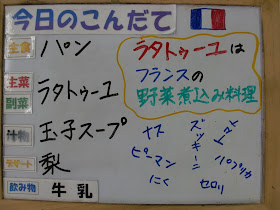 今日のこんだて
主食 パン
主菜
副菜
ラタトゥーユ
汁物 玉子スープ
デザート 梨
飲み物 牛乳
ラタトゥーユは
フランスの
野菜煮込み料理
ナス
ズッキーニ
トマト
ピーマン
パプリカ
にく
セロリ